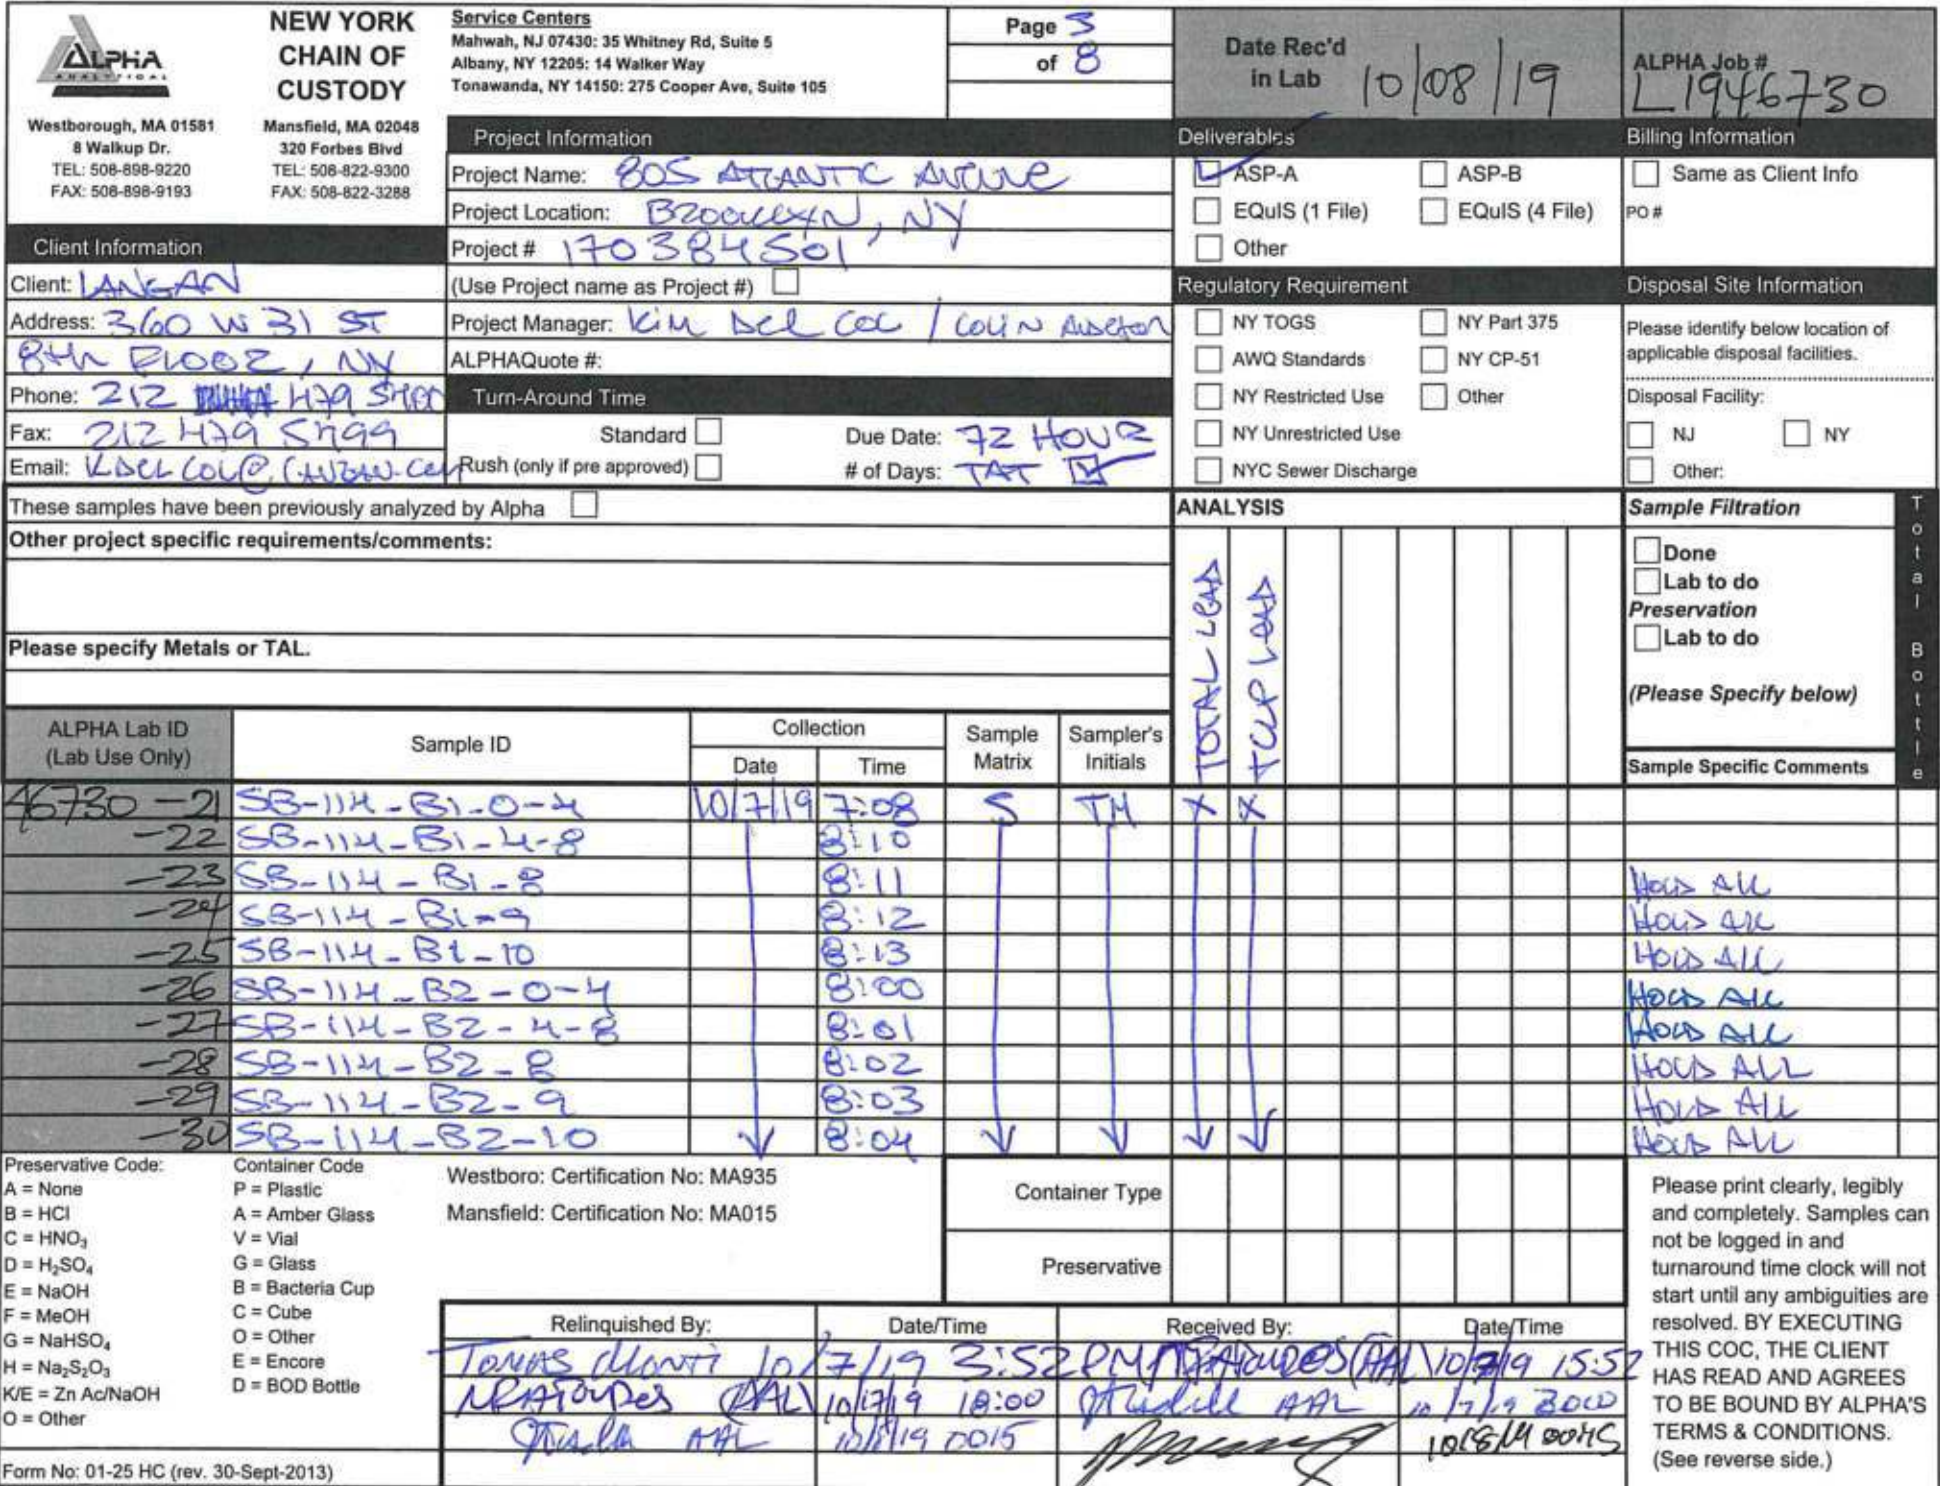 ALPHA
ANALYTICAL
NEW YORK
CHAIN OF
CUSTODY
Westborough, MA 01581
8 Walkup Dr.
TEL: 508-898-9220
FAX: 508-898-9193
Mansfield, MA 02048
320 Forbes Blvd
TEL: 508-822-9300
FAX: 508-822-3288
Service Centers
Mahwah, NJ 07430: 35 Whitney Rd, Suite 5
Albany, NY 12205: 14 Walker Way
Tonawanda, NY 14150: 275 Cooper Ave, Suite 105
Page 3
of 8
Date Rec'd
in Lab 10/08/19
ALPHA Job #
L1946730
Client Information
Client: LANGAN
Address: 360 W 31 ST
8th FLOOR, NY
Phone: 212 479 5400
Fax: 212 479 5499
Email: KDELCOL@LANGAN.COM
Project Information
Project Name: 805 ATLANTIC AVENUE
Project Location: BROOKLYN, NY
Project # 170384501
(Use Project name as Project #)
Project Manager: Kim Del Col / COLIN
ALPHAQuote #:
Turn-Around Time
Standard
Rush (only if pre approved)
Due Date: 72 HOUR
# of Days: TAT
Deliverables
ASP-A
ASP-B
EQuIS (1 File)
EQuIS (4 File)
Other
Regulatory Requirement
NY TOGS
NY Part 375
AWQ Standards
NY CP-51
NY Restricted Use
Other
NY Unrestricted Use
NYC Sewer Discharge
Billing Information
Same as Client Info
PO #
Disposal Site Information
Please identify below location of
applicable disposal facilities.
Disposal Facility:
NJ NY
Other:
These samples have been previously analyzed by Alpha
Other project specific requirements/comments:
Please specify Metals or TAL.
ANALYSIS
TOTAL LEAD
TCLP LEAD
Sample Filtration
Done
Lab to do
Preservation
Lab to do
(Please Specify below)
Total Bottle
ALPHA Lab ID
(Lab Use Only)
Sample ID
Collection
Date
Time
Sample
Matrix
Sampler's
Initials
Sample Specific Comments
46730 -21 SB-114-B1-0-4 10/7/19 7:08 S TM X X
-22 SB-114-B1-4-8 8:10
-23 SB-114-B1-8 8:11 HOLD ALL
-24 SB-114-B1-9 8:12 HOLD ALL
-25 SB-114-B1-10 8:13 HOLD ALL
-26 SB-114-B2-0-4 8:00 HOLD ALL
-27 SB-114-B2-4-8 8:01 HOLD ALL
-28 SB-114-B2-8 8:02 HOLD ALL
-29 SB-114-B2-9 8:03 HOLD ALL
-30 SB-114-B2-10 8:04 HOLD ALL
Preservative Code:
A = None
B = HCl
C = HNO₃
D = H₂SO₄
E = NaOH
F = MeOH
G = NaHSO₄
H = Na₂S₂O₃
K/E = Zn Ac/NaOH
O = Other
Container Code
P = Plastic
A = Amber Glass
V = Vial
G = Glass
B = Bacteria Cup
C = Cube
O = Other
E = Encore
D = BOD Bottle
Westboro: Certification No: MA935
Mansfield: Certification No: MA015
Container Type
Preservative
Relinquished By:
Date/Time
Received By:
Date/Time
TOMAS Monti 10/7/19 3:52 PM (AAL) 15:52
(AAL) 10/7/19 18:00 AAL 10/7/19
AAL 0015
Please print clearly, legibly
and completely. Samples can
not be logged in and
turnaround time clock will not
start until any ambiguities are
resolved. BY EXECUTING
THIS COC, THE CLIENT
HAS READ AND AGREES
TO BE BOUND BY ALPHA'S
TERMS & CONDITIONS.
(See reverse side.)
Form No: 01-25 HC (rev. 30-Sept-2013)